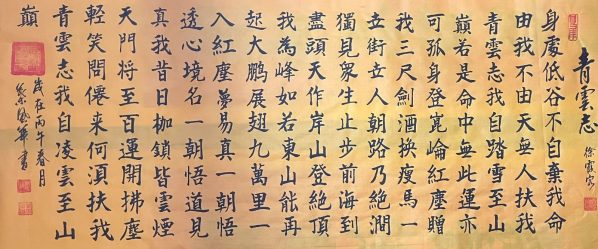 青雲志
徐霞客
身處低谷不自棄我命
由我不由天無人扶我
青雲志我自踏雪至山
巔若是命中無此運亦
可孤身登崑崙紅塵贈
我三尺劍酒換瘦馬一
立街立人朝路乃絕澗
獨見眾生止步前海到
盡頭天作岸山登絕頂
我為峰如若東山能再
起大鵬展翅九萬里一
入紅塵夢易真一朝悟
透心境名一朝悟道見
真我昔日枷鎖皆雲煙
天門將至百運開拂塵
輕笑問僊來何湏扶我
青雲志我自淩雲至山
巔
歲在丙午春月
書